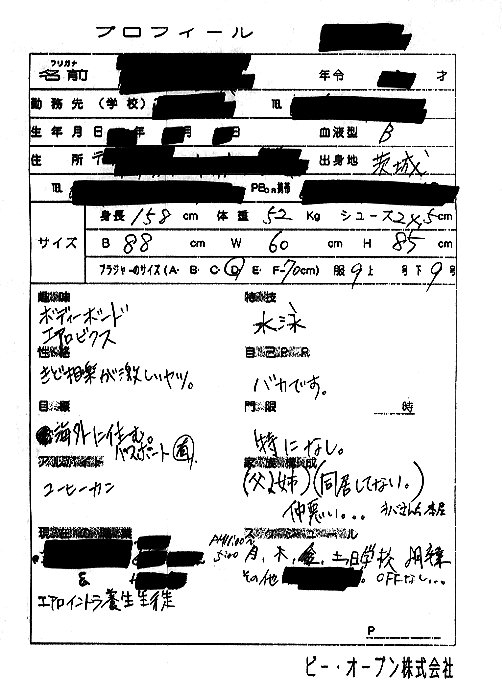 プロフィール
フリガナ
名前
年令 才
勤務先(学校) TEL
生年月日 年 月 日 血液型 B
住所 〒 出身地 茨城
TEL PBor携帯
サイズ
身長 158 cm 体重 52 Kg シューズ 24.5 cm
B 88 cm W 60 cm H 85 cm
ブラジャーのサイズ (A・B・C・D・E・F-70cm) 服 9 上 号下 9 号
趣味 特技
ボディーボード
エアロビクス
水泳
性格 自己PR
きど相楽が激しいヤツ。
バカです。
目標 門限 時
海外に住む。
パスポート 有
特になし。
アルバイト 家族構成
コーヒーカン
(父と姉)(同居してない。)
仲悪い...
スケジュール
月、木、金、土日学校
その他 。OFFなし...
&
エアロイントラ養生生徒
P
ビー・オープン株式会社